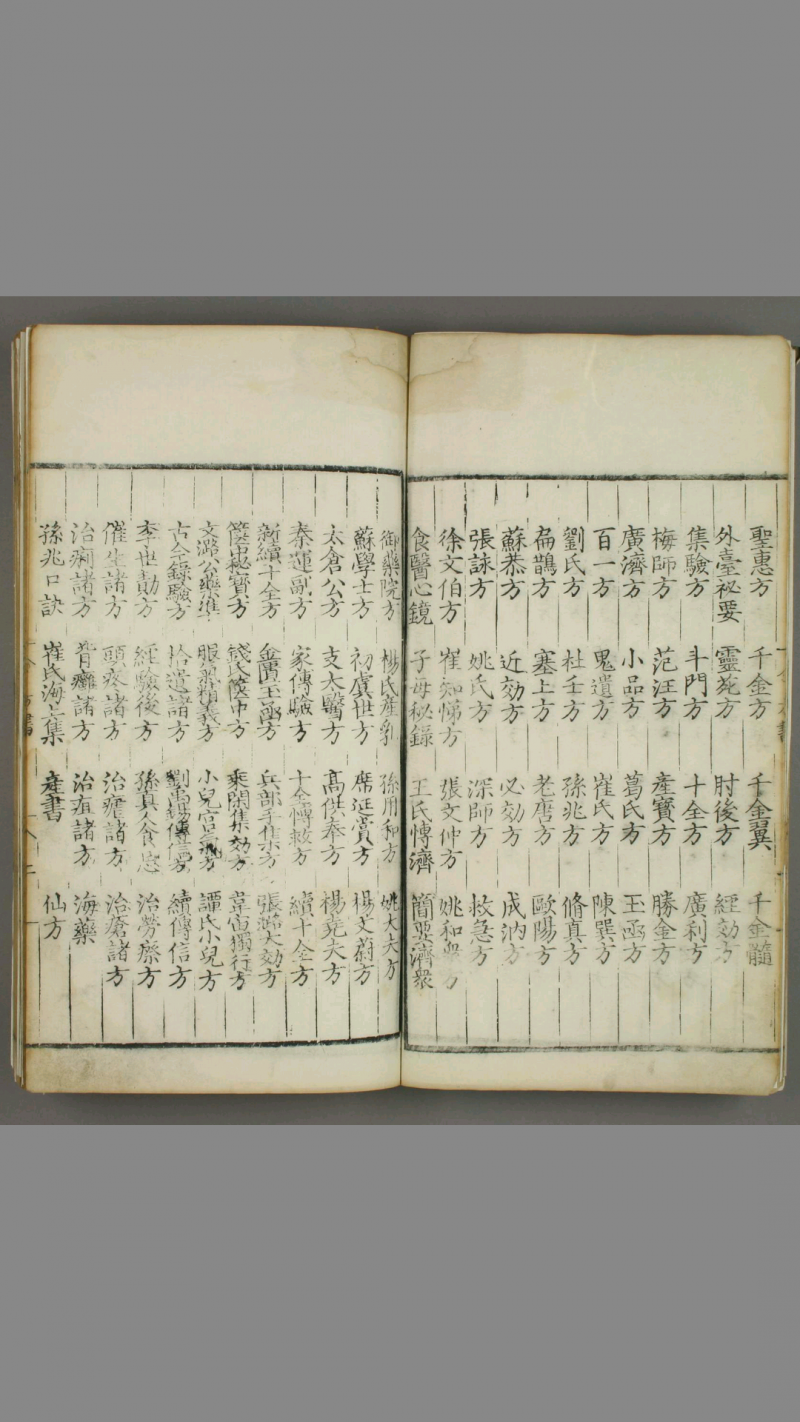 聖惠方 千金方 千金翼 千金髓
外臺祕要 靈苑方 肘後方 經効方
集驗方 斗門方 十全方 廣利方
梅師方 范汪方 產寶方 勝金方
廣濟方 小品方 葛氏方 玉函方
百一方 鬼遺方 崔氏方 陳巽方
劉氏方 杜壬方 孫兆方 脩真方
扁鵲方 塞上方 老唐方 歐陽方
蘇恭方 近効方 必効方 成汭方
張詠方 姚氏方 深師方 救急方
徐文伯方 崔知悌方 張文仲方 姚和衆方
食醫心鏡 子母秘錄 王氏愽濟 簡要濟衆
御藥院方 楊氏產乳 孫用和方 姚大夫方
蘇學士方 初虞世方 席延賞方 楊文蔚方
太倉公方 支太醫方 高供奉方 楊堯夫方
秦運副方 家傳驗方 十全愽救方 續十全方
新續十全方 金匱玉函方 兵部手集方 張潞大効方
篋中秘寳方 錢氏篋中方 乘閑集効方 韋宙獨行方
文潞公藥準方 服氣精義方 小兒宮氣方 譚氏小兒方
古今錄驗方 拾遺諸方 劉禹錫傳信方 續傳信方
李世勣方 經驗後方 孫真人食忌 治勞瘵方
催生諸方 頭疼諸方 治瘧諸方 治瘡諸方
治痢諸方 背癰諸方 治疽諸方 海藥
孫兆口訣 崔氏海上集 產書 仙方